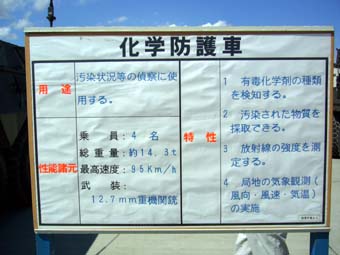 化学防護車
用途
汚染状況等の偵察に使
用する。
性能諸元
乗員:4名
総重量:約14.3t
最高速度:95Km/h
武装:
12.7mm重機関銃
特性
1 有毒化学剤の種類
を検知する。
2 汚染された物質を
採取できる。
3 放射線の強度を測
定する。
4 局地の気象観測(
風向・風速・気温)
の実施